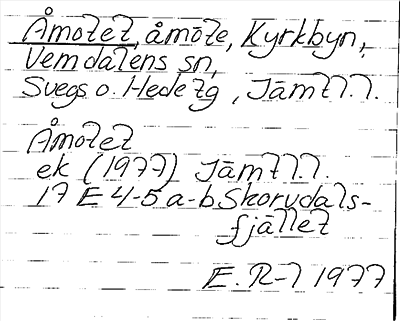 Åmotet, åmöte, Kyrkbyn,
Vemdalens sn,
Svegs o. Hede tg, Jämtl.l.
Åmotet
ek (1977) Jämtl.l.
17 E 4-5 a-b Skorvdals-
fjället
E. R-l 1977